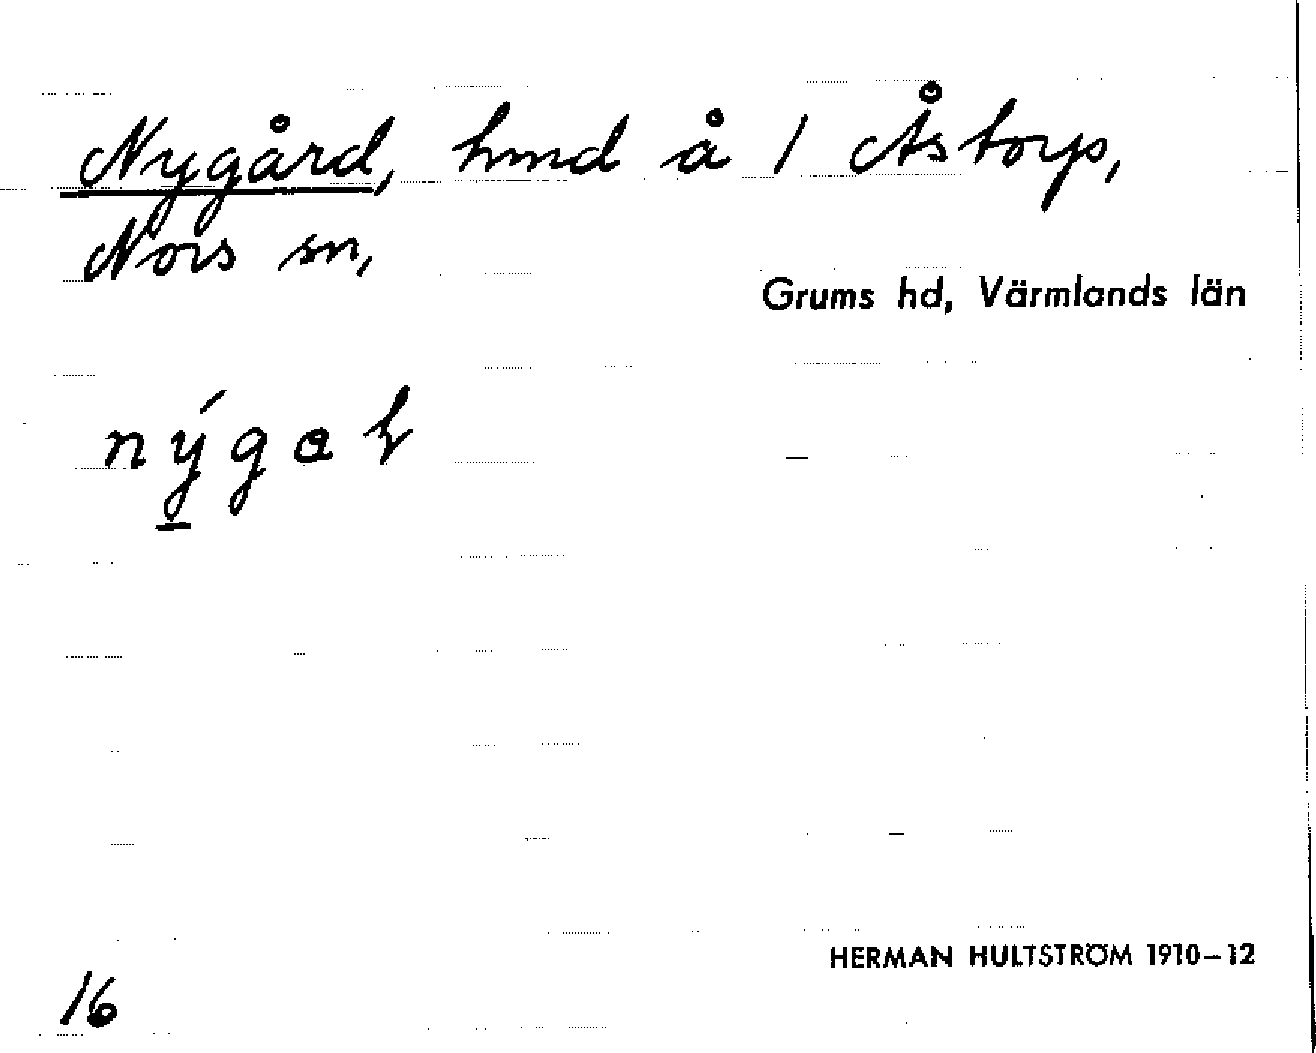 Nygård, hmd å 1 Åstorp,
Nors sn,
Grums hd, Värmlands län
HERMAN HULTSTRÖM 1910–12
16